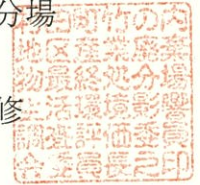 分場
修
村田町竹の内
地区産業廃棄
物最終処分場
生活環境影響
調査評価委員
会委員長之印